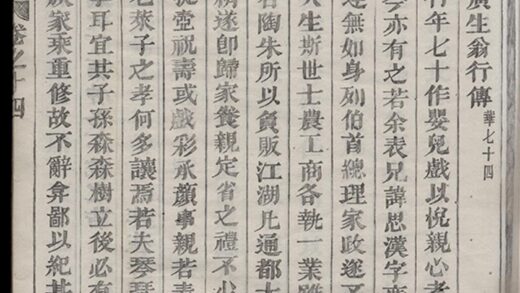 廣生翁行傳 華七十四
行年七十作嬰兒戲以悅親心者
今亦有之若余表兄諱思漢字
逐無如身列伯首總理家政遂
人生斯世士農工商各執一業雖
者陶朱所以貿販江湖凡通都
綢遂卽歸家養親定省之禮不少
從壺祝壽或戲彩承顏事親若
老萊子之孝何多讓焉若夫琴
享耳宜其子孫森森樹立後必有
厥家乘重修故不辭弇鄙以紀其
卷之十四